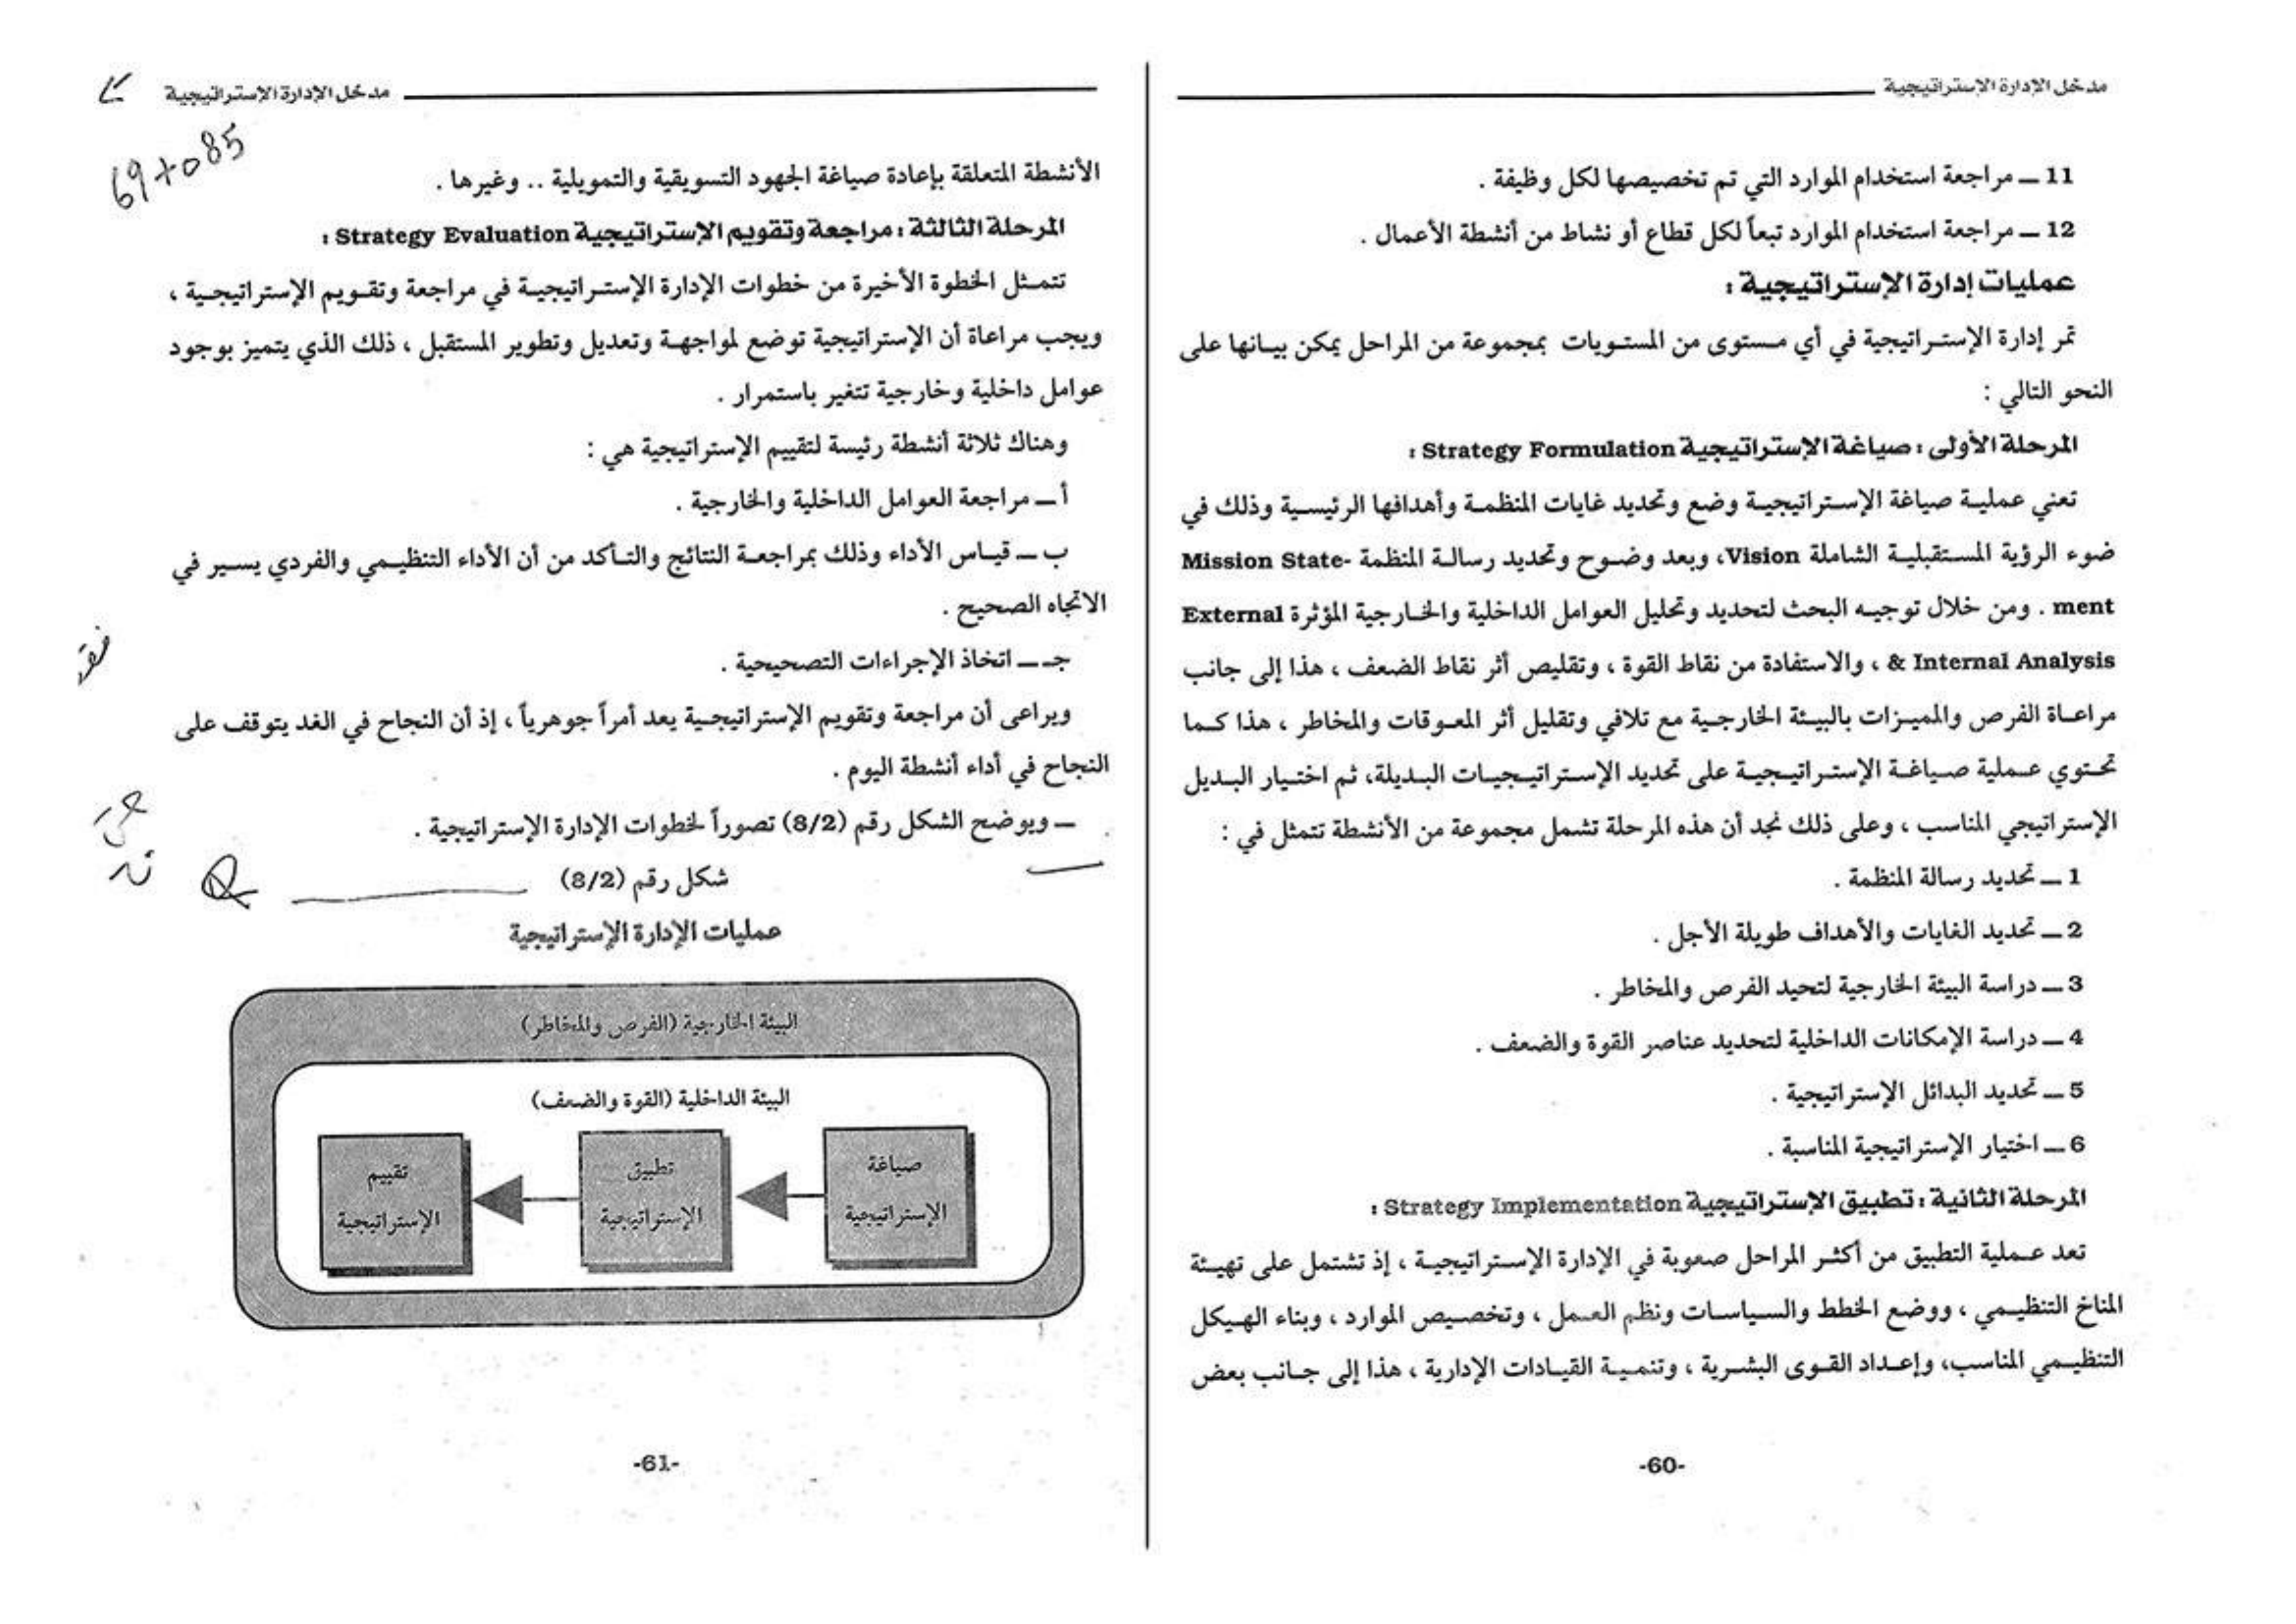 مدخل الإدارة الإستراتيجية
11 ــ مراجعة استخدام الموارد التي تم تخصيصها لكل وظيفة .
12 ــ مراجعة استخدام الموارد تبعاً لكل قطاع أو نشاط من أنشطة الأعمال .
عمليات إدارة الإستراتيجية :
تمر إدارة الإستراتيجية في أي مستوى من المستويات بمجموعة من المراحل يمكن بيانها على
النحو التالي :
المرحلة الأولى : صياغة الإستراتيجية Strategy Formulation :
تعني عملية صياغة الإستراتيجية وضع وتحديد غايات المنظمة وأهدافها الرئيسية وذلك في
ضوء الرؤية المستقبلية الشاملة Vision، وبعد وضوح وتحديد رسالة المنظمة Mission State-
ment . ومن خلال توجيه البحث لتحديد وتحليل العوامل الداخلية والخارجية المؤثرة External
& Internal Analysis ، والاستفادة من نقاط القوة ، وتقليص أثر نقاط الضعف ، هذا إلى جانب
مراعاة الفرص والمميزات بالبيئة الخارجية مع تلافي وتقليل أثر المعوقات والمخاطر ، هذا كما
تحتوي عملية صياغة الإستراتيجية على تحديد الإستراتيجيات البديلة، ثم اختيار البديل
الإستراتيجي المناسب ، وعلى ذلك نجد أن هذه المرحلة تشمل مجموعة من الأنشطة تتمثل في :
1 ــ تحديد رسالة المنظمة .
2 ــ تحديد الغايات والأهداف طويلة الأجل .
3 ــ دراسة البيئة الخارجية لتحيد الفرص والمخاطر .
4 ــ دراسة الإمكانات الداخلية لتحديد عناصر القوة والضعف .
5 ــ تحديد البدائل الإستراتيجية .
6 ــ اختيار الإستراتيجية المناسبة .
المرحلة الثانية : تطبيق الإستراتيجية Strategy Implementation :
تعد عملية التطبيق من أكثر المراحل صعوبة في الإدارة الإستراتيجية ، إذ تشتمل على تهيئة
المناخ التنظيمي ، ووضع الخطط والسياسات ونظم العمل ، وتخصيص الموارد ، وبناء الهيكل
التنظيمي المناسب، وإعداد القوى البشرية ، وتنمية القيادات الإدارية ، هذا إلى جانب بعض
-60-
مدخل الإدارة الإستراتيجية
الأنشطة المتعلقة بإعادة صياغة الجهود التسويقية والتمويلية .. وغيرها .
المرحلة الثالثة : مراجعة وتقويم الإستراتيجية Strategy Evaluation :
تتمثل الخطوة الأخيرة من خطوات الإدارة الإستراتيجية في مراجعة وتقويم الإستراتيجية ،
ويجب مراعاة أن الإستراتيجية توضع لمواجهة وتعديل وتطوير المستقبل ، ذلك الذي يتميز بوجود
عوامل داخلية وخارجية تتغير باستمرار .
وهناك ثلاثة أنشطة رئيسة لتقييم الإستراتيجية هي :
أ ــ مراجعة العوامل الداخلية والخارجية .
ب ــ قياس الأداء وذلك بمراجعة النتائج والتأكد من أن الأداء التنظيمي والفردي يسير في
الاتجاه الصحيح .
جـ ــ اتخاذ الإجراءات التصحيحية .
ويراعى أن مراجعة وتقويم الإستراتيجية يعد أمراً جوهرياً ، إذ أن النجاح في الغد يتوقف على
النجاح في أداء أنشطة اليوم .
ــ ويوضح الشكل رقم (8/2) تصوراً لخطوات الإدارة الإستراتيجية .
شكل رقم (8/2)
عمليات الإدارة الإستراتيجية
البيئة الخارجية (الفرص والمخاطر)
البيئة الداخلية (القوة والضعف)
صياغة
الإستراتيجية
تطبيق
الإستراتيجية
تقييم
الإستراتيجية
-61-